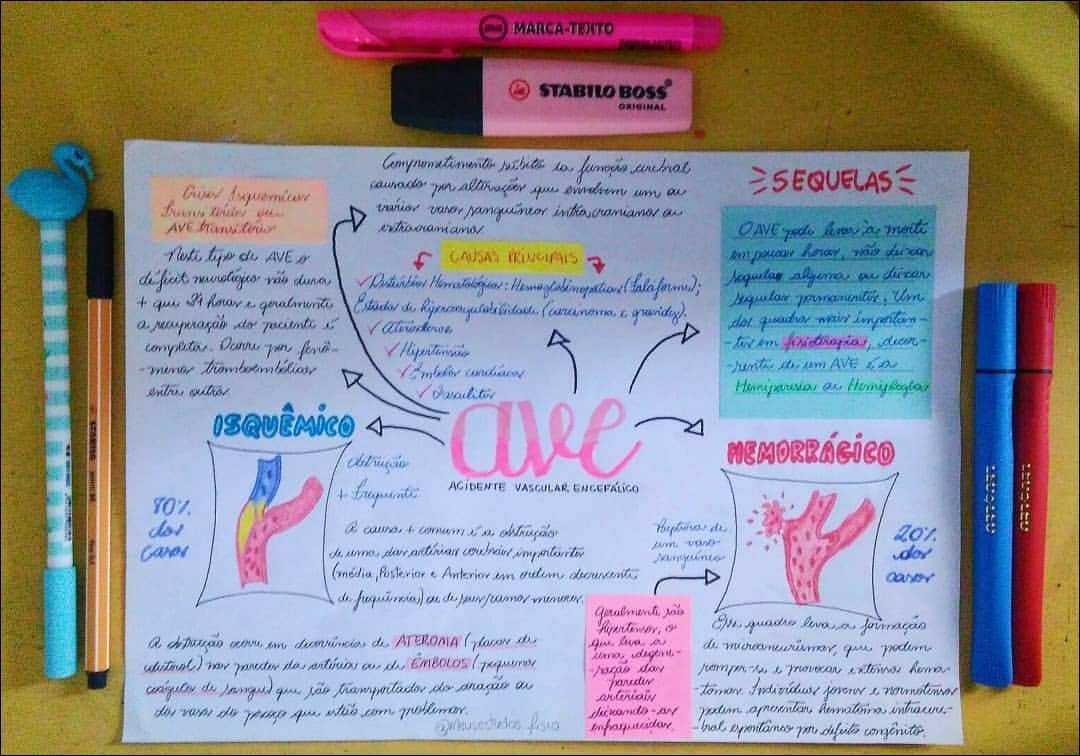 MARCA-TEXTO
STABILO BOSS
ORIGINAL
Crises Isquêmicas
Transitórias ou
AVE transitório
Neste tipo de AVE o
déficit neurológico não dura
+ que 24 horas e geralmente
a recuperação do paciente é
completa. Ocorre por fenô-
menos tromboembólicos
entre outros.
Comprometimento súbito da função cerebral
causado por alterações que envolvem um ou
vários vasos sanguíneos intracranianos ou
extracranianos
CAUSAS PRINCIPAIS
Distúrbios Hematológicos: Hemoglobinopatias (falaforme);
Estados de hipercoagulabilidade (carcinoma e gravidez).
Hipertensão
Êmbolos cardíacos
Vasculites
SEQUELAS
O AVE pode levar à morte
em poucas horas, não deixar
sequelas alguma ou deixar
sequelas permanentes. Um
dos quadros mais importan-
-tes em fisioterapia, decor-
-rente de um AVE é a
Hemiparesia ou Hemiplegia
ave
ACIDENTE VASCULAR ENCEFÁLICO
ISQUÊMICO
80%
dos
casos
obstrução
+ frequente
A causa + comum é a obstrução
de uma das artérias cerebrais importantes
(média, Posterior e Anterior em ordem decrescente
de frequência) ou de seus ramos menores.
A obstrução ocorre em decorrência de ATEROMA (placas de
colesterol) nas paredes da artéria ou de ÊMBOLOS (pequenos
coágulos de sangue) que são transportados do coração ou
dos vasos do pescoço que estão com problemas.
HEMORRÁGICO
Ruptura de
um vaso
sanguíneo
20%
dos
casos
Geralmente são
hipertensos, o
que leva a
uma degene-
-ração das
paredes
arteriais
deixando-as
enfraquecidas.
Esse quadro leva a formação
de microaneurismas, que podem
romper-se e provocar extensos hema-
-tomas. Indivíduos jovens e normotensos
podem apresentar hematoma intracere-
-bral espontâneo por defeito congênito.